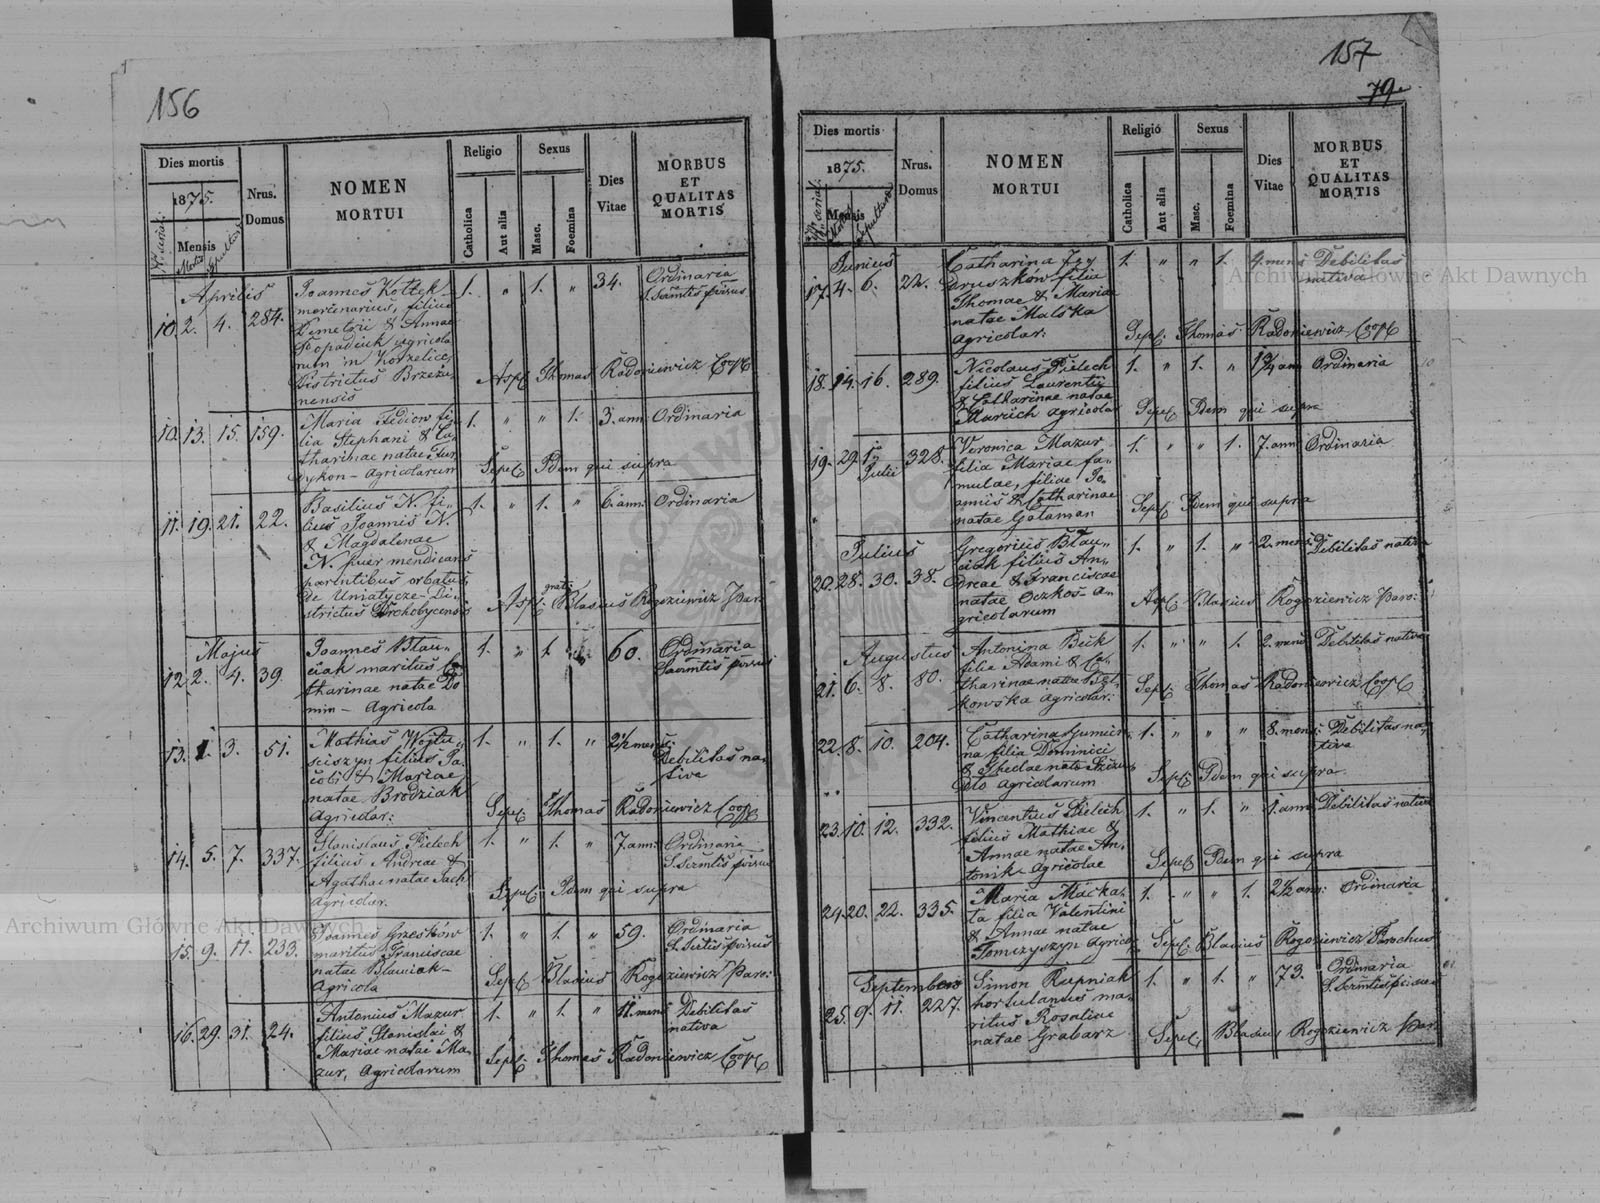 156
Dies mortis
1875.
Nro serial.
Mensis
Mortis
Sepulturae
Nrus. Domus
NOMEN
MORTUI
Religio
Catholica
Aut alia
Sexus
Masc.
Foemina
Dies Vitae
MORBUS
ET
QUALITAS
MORTIS
Aprilis
10. 2. 4. 284. Joannes Kotlek 1. " 1. " 34. Ordinaria
mercenarius, filius S. Scmtis provisus
Demetrii & Annae
Popadiuk agricola
rum in Korzelice,
Districtus Brzeża-
nensis
Aspel Thomas Radoniewicz Coop
10. 13. 15. 159. Maria Fediow fi- 1. " " 1. 3. ann: Ordinaria
lia Stephani & Ca
tharinae natae Tur
Sykon - Agricolarum Sepel: Idem qui supra
11. 19. 21. 22. Basilius N. fi- 1. " 1. " 6. ann: Ordinaria
lius Joannis N.
& Magdalenae
N. puer mendicans
parentibus orbatus
de Uniatycze - Di-
strictus Drohobycensis
Aspel: gratis Blasius Rogoziewicz Par:
Majus
12. 2. 4. 39. Joannes Blau- 1. " 1. " 60. Ordinaria
ciak maritus Ca Sacrmtis provisus
tharinae natae Do
min - Agricola
13. 1. 3. 51. Mathias Wojtu- 1. " 1. " 2½ mens:
sciszyn filius Ja- Debilitas na-
cobi & Mariae tiva
natae Brodziak
Agricolar: Sepel: Thomas Radoniewicz Coop
14. 5. 7. 337. Stanislaus Pielech 1. " 1. " 7 ann: Ordinaria
filius Andreae & S. Scrmtis provisus
Agathae natae Sach
Agricolar. Sepel: Idem qui supra
15. 9. 11. 233. Joannes Grzeskow 1. " 1. " 59. Ordinaria
maritus Franciscae
natae Blawiak -
Agricola Sepel: Blasius Rogoziewicz Paro:
16. 29. 31. 24. Antonius Mazur 1. " 1. " 11. mens Debilitas
filius Stanislai & nativa
Mariae natae Ma-
zur, Agricolarum Sepel: Thomas Radoniewicz Coop
157
79.
Dies mortis
1875.
Nro serial.
Mensis
Mortis
Sepulturae
Nrus. Domus
NOMEN
MORTUI
Religio
Catholica
Aut alia
Sexus
Masc.
Foemina
Dies Vitae
MORBUS
ET
QUALITAS
MORTIS
Junius
17. 4. 6. 22. Catharina Jẏ 1. " " 1. 4. mens Debilitas
druszkow filia nativa
Thomae & Mariae
natae Malska
Agricolar: Sepel: Thomas Radoniewicz Coop
18. 14. 16. 289. Nicolaus Pielech 1. " 1. " 1¾ ann Ordinaria
filius Laurentii
& Catharinae natae
Maruich Agricolar Sepel: Idem qui supra
19. 29. 1. Julii 328. Veronica Mazur 1. " " 1. 7. ann: Ordinaria
filia Mariae fa-
mulae, filiae Jo-
annis & Catharinae
natae Gataman Sepel: Idem qui supra
Julius
20. 28. 30. 38. Gregorius Blau- 1. " 1. " 2. mens: Debilitas nativa
ciak filius An-
dreae & Franciscae
natae Oczkos - A-
gricolarum Aspel: Blasius Rogoziewicz Paro:
Augustus
21. 6. 8. 80. Antonina Bek 1. " " 1. 2. mens Debilitas nativa
filia Adami & Ca-
tharinae natae
kowska Agricolar: Sepel: Thomas Radoniewicz Coop
22. 8. 10. 204. Catharina Humein- 1. " " " 8. mens: Debilitas na-
na filia Dominici tiva
& Theclae natae
Agricolarum Sepel: Idem qui supra
23. 10. 12. 332. Vincentius Pielech 1. " 1. " 1. ann: Debilitas nativa
filius Mathiae &
Annae natae An-
tonik - Agricolae Sepel: Idem qui supra
24. 20. 22. 335. Maria Macka- 1. " " 1. 2½ ann: Ordinaria
ta filia Valentini
& Annae natae
Tomczyszyn Agricol Sepel: Blasius Rogoziewicz Parochus
September
25. 9. 11. 227. Simon Rupniak 1. " 1. " 73. Ordinaria
hortulanus ma- S. Scrmtis provisus
ritus Rosaliae
natae Grabarz Sepel: Blasius Rogoziewicz Par.
Archiwum Główne Akt Dawnych
Archiwum Główne Akt Dawnych